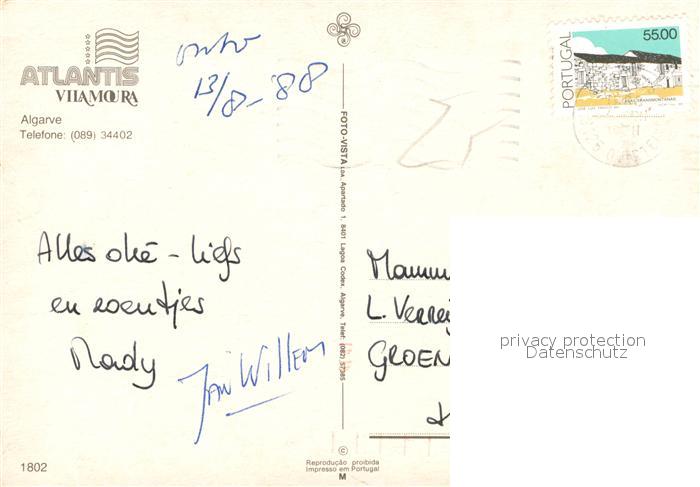 ATLANTIS
VILAMOURA
Algarve
Telefone: (089) 34402
13/8-'88
PORTUGAL
55.00
FOTO-VISTA LDA, Apartado 1, 8401 Lagoa Codex, Algarve, Telef: (082) 57385
Alles oké - liefs
en zoentjes
Mady
Jan Willem
Mamm
L. Verreij
GROEN
privacy protection
Datenschutz
1802
©
Reprodução proibida
Impresso em Portugal
M